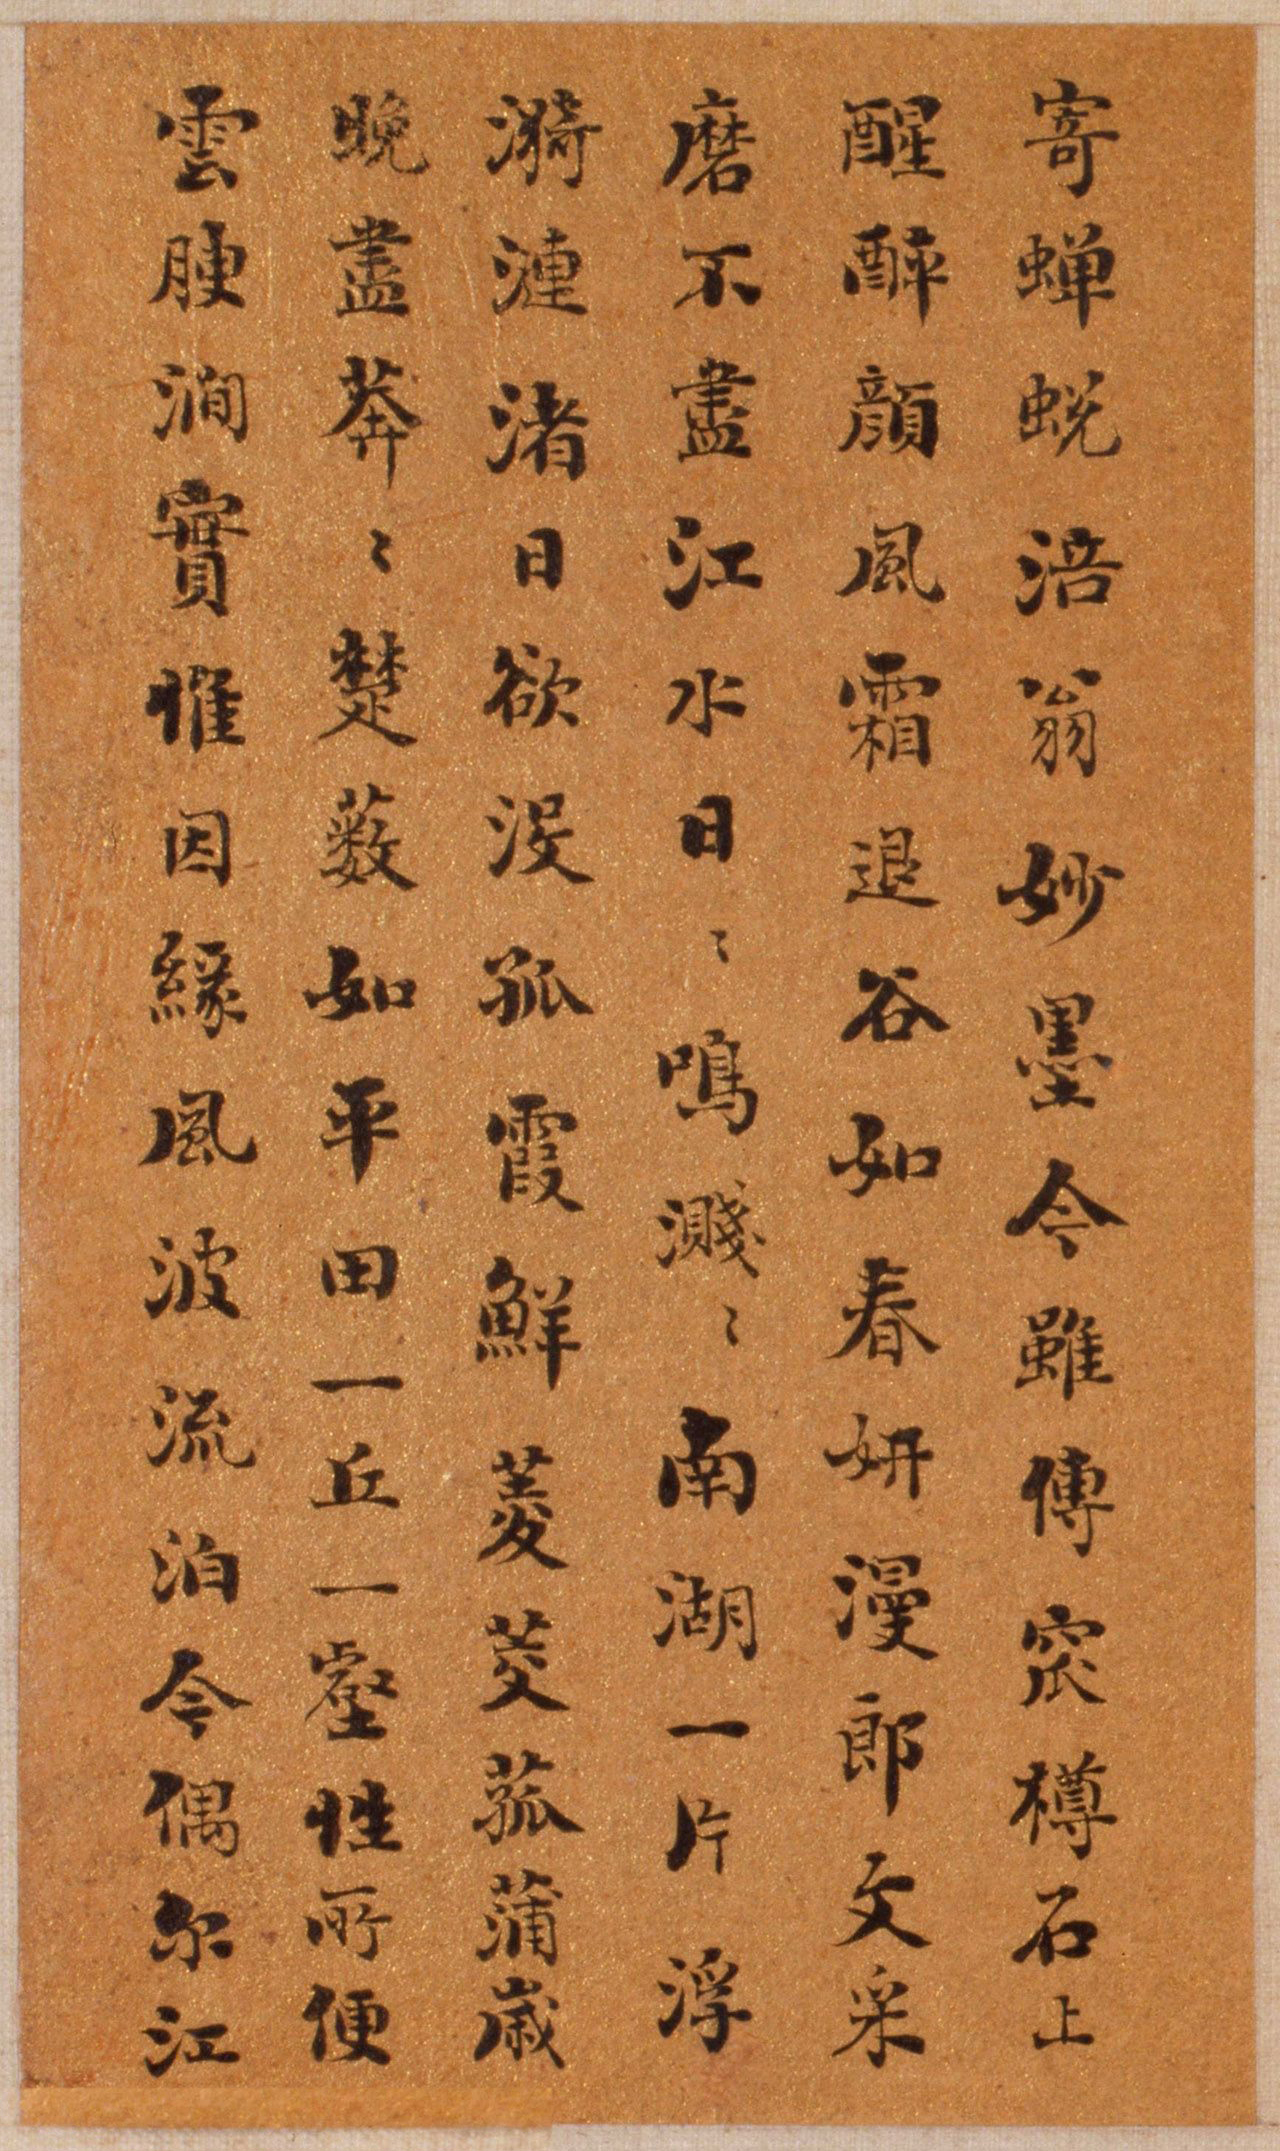 寄蟬蛻涪翁妙墨今雖傳窊樽石上
醒醉顏風霜退谷如春妍漫郎文采
磨不盡江水日〻鳴濺〻南湖一片浮
漪漣渚日欲沒孤霞鮮菱芰菰蒲歲
晚盡莽〻楚藪如平田一丘一壑性所便
雲腴澗實惟因緣風波流泊今偶尔江